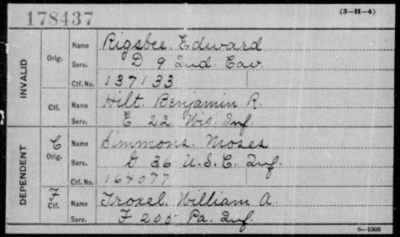 178437
(3-H-4)
INVALID
Orig.
Name Rigsbee. Edward
Serv. D 9 Ind. Cav.
Ctf. No. 137133
Ctf.
Name Hilt. Benjamin R.
Serv. E 22 Wis. Inf.
DEPENDENT
C
Orig.
Name Simmons. Moses
Serv. G 36 U.S.C. Inf.
Ctf. No. 164077
Ctf.
Name Troxel. William A.
Serv. F 200 Pa. Inf.
6-1303